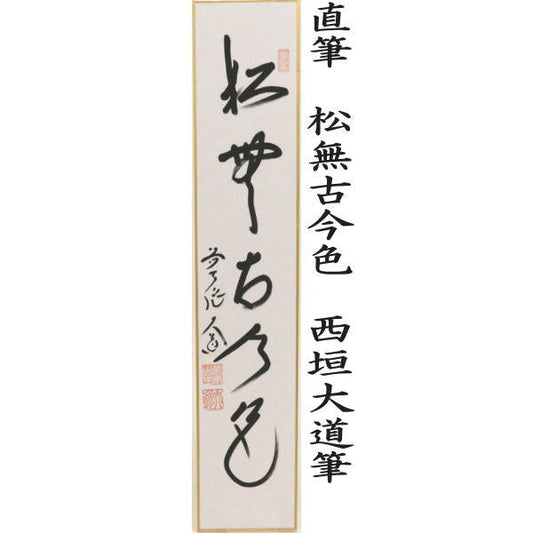 直筆　松無古今色　西垣大道筆
松無古今色